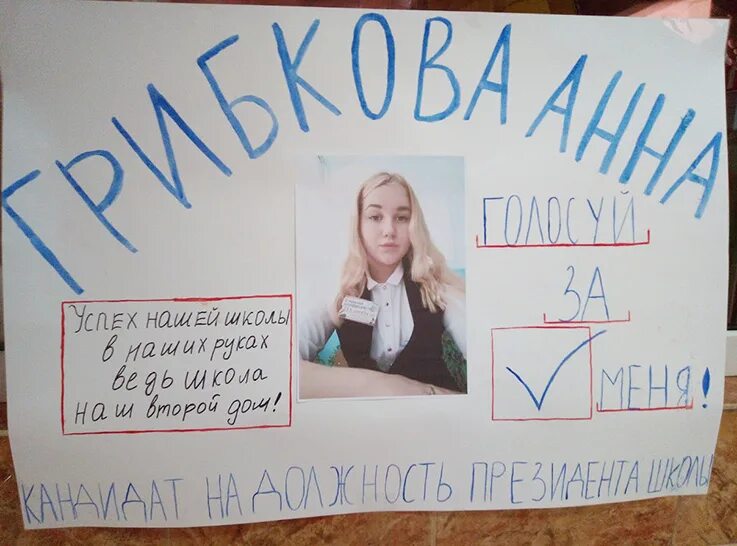 ГРИБКОВА АННА
ГОЛОСУЙ
ЗА
МЕНЯ!
Успех нашей школы
в наших руках
ведь школа
наш второй дом!
КАНДИДАТ НА ДОЛЖНОСТЬ ПРЕЗИДЕНТА ШКОЛЫ